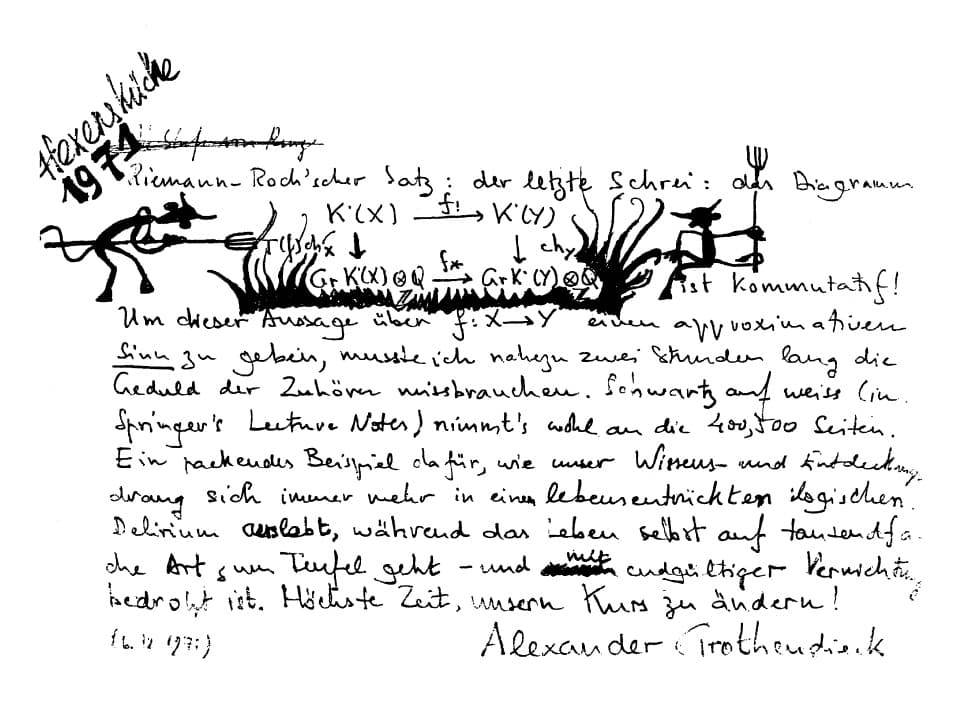 Hexenküche
1971
Riemann-Roch'scher Satz: der letzte Schrei: das Diagramm
K˙(X) f! → K˙(Y)
↓ ↓ ch_Y
Gr K˙(X)⊗Q f* → Gr K˙(Y)⊗Q
ist kommutatif!
Um dieser Aussage über f: X→Y einen approximativen
Sinn zu geben, musste ich nahezu zwei Stunden lang die
Geduld der Zuhörer missbrauchen. Schwartz auf weiss (in
Springer's Lecture Notes) nimmt's wohl an die 400,500 Seiten.
Ein packendes Beispiel dafür, wie unser Wissens- und Entdeckungs-
drang sich immer mehr in einem lebensentrückten logischen
Delirium auslebt, während das Leben selbst auf tausendfa-
che Art zum Teufel geht - und mit endgültiger Vernichtung
bedroht ist. Höchste Zeit, unsern Kurs zu ändern!
Alexander Grothendieck